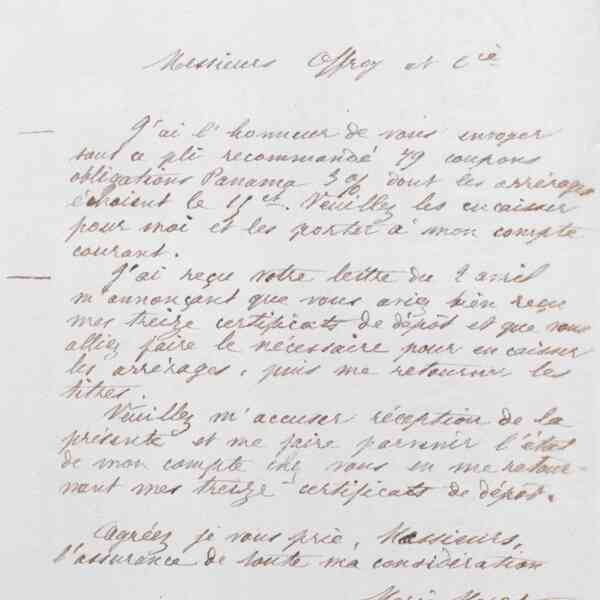 Messieurs Offroy et Cie
J'ai l'honneur de vous envoyer
sous ce pli recommandé 49 coupons
obligations Panama 3% dont les arrérages
échoient le 15 ct. Veuillez les encaisser
pour moi et les porter à mon compte
courant.
J'ai reçu votre lettre du 2 avril
m'annonçant que vous aviez bien reçu
mes treize certificats de dépôt et que vous
alliez faire le nécessaire pour encaisser
les arrérages, puis me retourner les
titres.
Veuillez m'accuser réception de la
présente et me faire parvenir l'état
de mon compte chez vous en me retour-
nant mes treize certificats de dépôt.
Agréez je vous prie, Messieurs,
l'assurance de toute ma considération